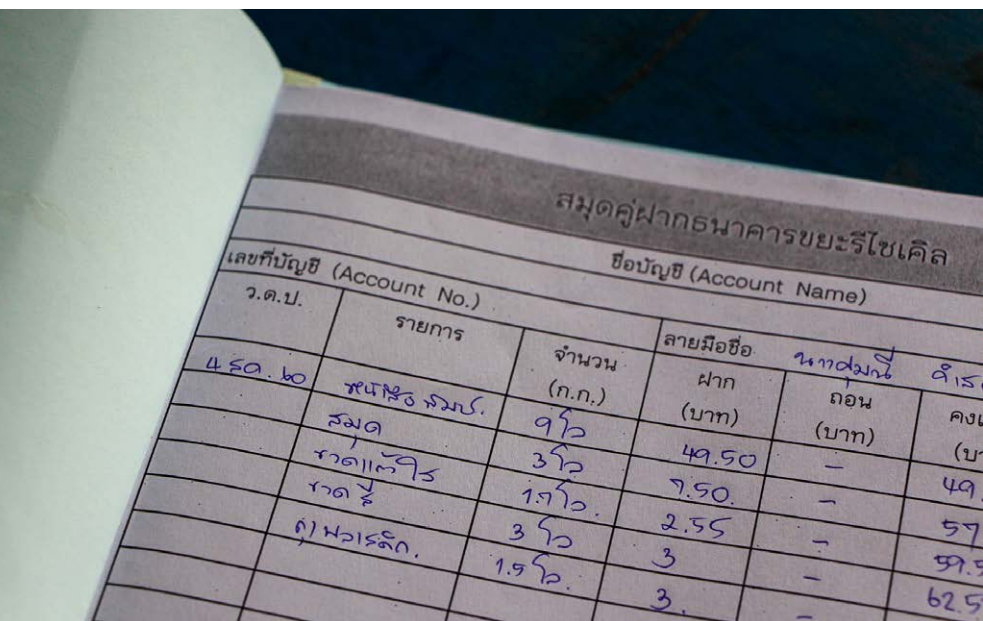 สมุดคู่ฝากธนาคารขยะรีไซเคิล
เลขที่บัญชี (Account No.) ชื่อบัญชี (Account Name)
ว.ด.ป. รายการ จำนวน (ก.ก.) ลายมือชื่อ
ฝาก (บาท) ถอน (บาท)
4 ธค. 60 หนังสือ สมป. 9 โล 49.50 - 49.
สมุด 3 โล 7.50 - 57
ขวดแก้วใส 1.7 โล. 2.55 - 59.5
ขวดสี 3 โล 3 - 62.5
ถุงพลาสติก. 1.5 โล. 3. -